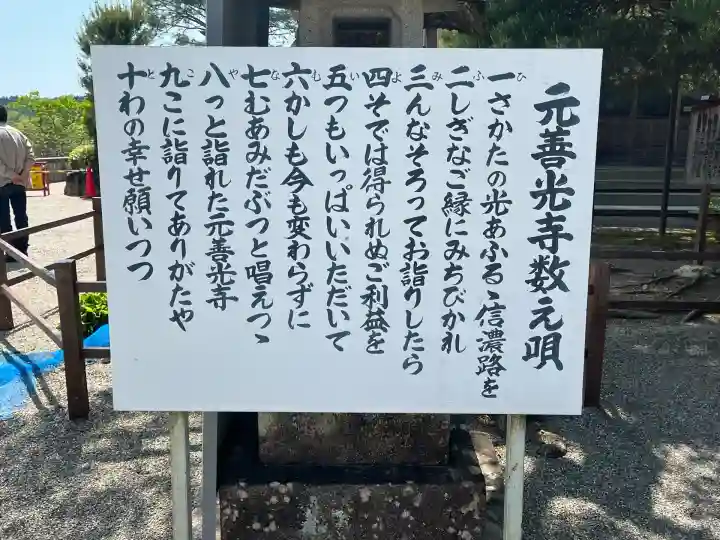 元善光寺数え唄
一さかたの光あふるゝ信濃路を
二しぎなご縁にみちびかれ
三んなそろってお詣りしたら
四そでは得られぬご利益を
五つもいっぱいいただいて
六かしも今も変わらずに
七むあみだぶつと唱えつゝ
八っと詣れた元善光寺
九こに詣りてありがたや
十わの幸せ願いつつ